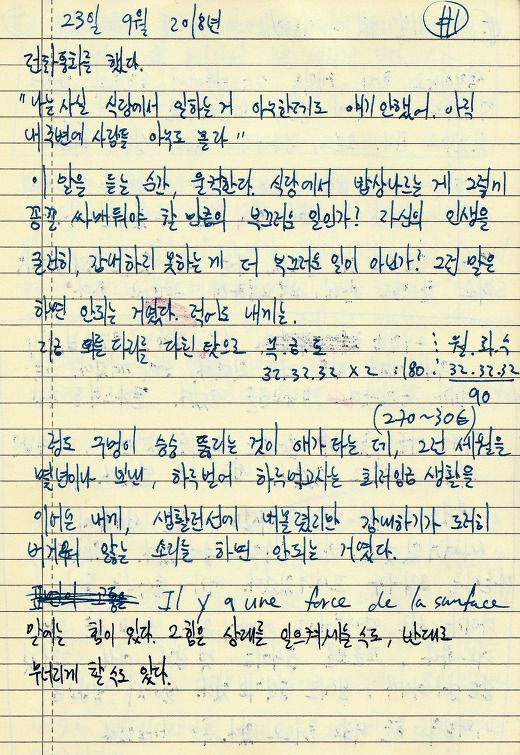 #1
23일 9월 2018년
전화통화를 했다.
"나는 사실 식당에서 일하는 거 아무한테도 얘기 안했어. 아직
내 주변에 사람들 아무도 몰라"
이 말을 듣는 순간, 울컥한다. 식당에서 밥상나르는 게 그렇게
꽁꽁 싸매둬야 할 만큼의 부끄러운 일인가? 자신의 인생을
온전히, 감내하지 못하는 게 더 부끄러운 일이 아닌가? 그런 말은
하면 안되는 거였다. 적어도 내게는.
지금 다리를 다친 탓으로 목.금.토 : 월.화.수
32.32.32 x 2 :180: 32.32.32
90
(270~306)
림도 구멍이 숭숭 뚫리는 것이 애가 타는 데, 그런 세월을
몇년이나 보낸, 하루벌어 하루먹고사는 최저임금 생활을
이어온 내게, 생활전선에 내몰렸지만 감내하기가 도저히
버거워 앓는 소리를 하면 안되는 거였다.
Il y a une force de la surface
말에는 힘이 있다. 그 힘은 상대를 일으켜세울 수도, 반대로
무너지게 할 수도 있다.